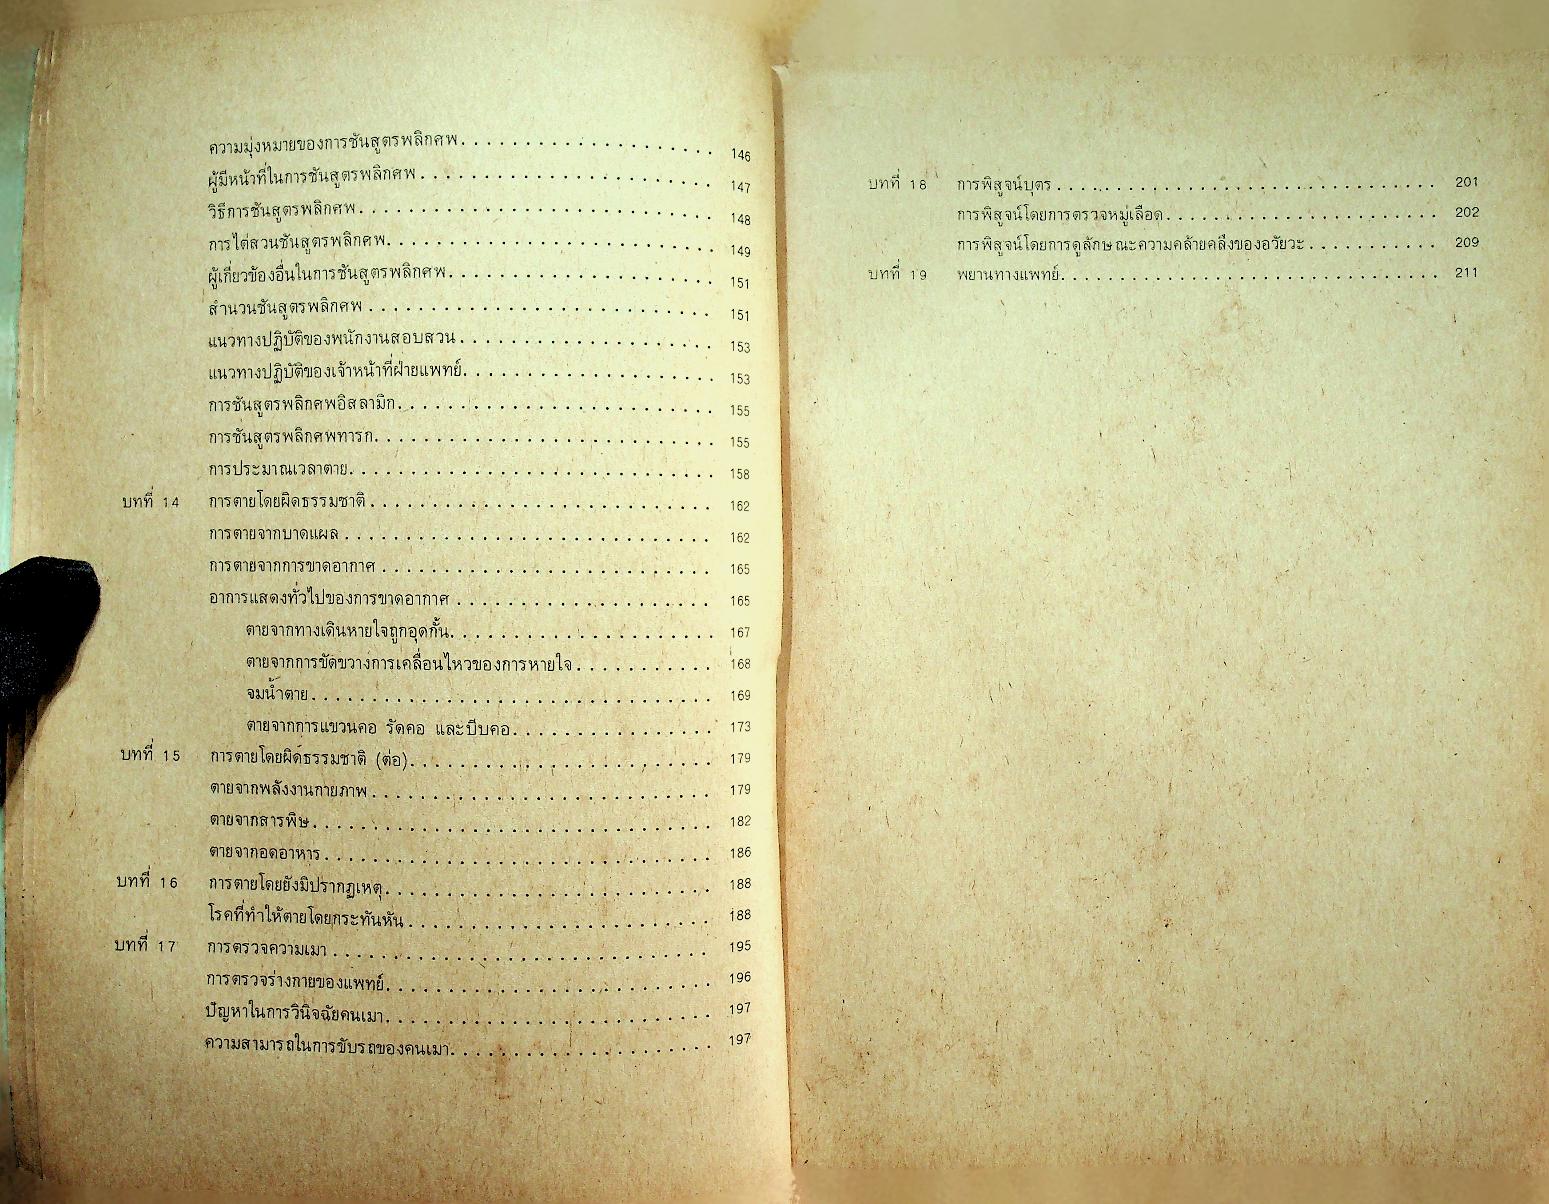 ความมุ่งหมายของการชันสูตรพลิกศพ . . . . . . . . . . . . . . . . . . . . 146
ผู้มีหน้าที่ในการชันสูตรพลิกศพ . . . . . . . . . . . . . . . . . . . . . . . 147
วิธีการชันสูตรพลิกศพ . . . . . . . . . . . . . . . . . . . . . . . . . . . . 148
การไต่สวนชันสูตรพลิกศพ . . . . . . . . . . . . . . . . . . . . . . . . . . 149
ผู้เกี่ยวข้องอื่นในการชันสูตรพลิกศพ . . . . . . . . . . . . . . . . . . . . . 151
สำนวนชันสูตรพลิกศพ . . . . . . . . . . . . . . . . . . . . . . . . . . . . 151
แนวทางปฏิบัติของพนักงานสอบสวน . . . . . . . . . . . . . . . . . . . . 153
แนวทางปฏิบัติของเจ้าหน้าที่ฝ่ายแพทย์ . . . . . . . . . . . . . . . . . . . . 153
การชันสูตรพลิกศพอิสลามิก . . . . . . . . . . . . . . . . . . . . . . . . . 155
การชันสูตรพลิกศพทารก . . . . . . . . . . . . . . . . . . . . . . . . . . . 155
การประมาณเวลาตาย . . . . . . . . . . . . . . . . . . . . . . . . . . . . . 158
บทที่ 14 การตายโดยผิดธรรมชาติ . . . . . . . . . . . . . . . . . . . . . . . . . . . 162
การตายจากบาดแผล . . . . . . . . . . . . . . . . . . . . . . . . . . . . . 162
การตายจากการขาดอากาศ . . . . . . . . . . . . . . . . . . . . . . . . . . 165
อาการแสดงทั่วไปของการขาดอากาศ . . . . . . . . . . . . . . . . . . . . 165
ตายจากทางเดินหายใจถูกอุดกั้น . . . . . . . . . . . . . . . . . . . . . 167
ตายจากการขัดขวางการเคลื่อนไหวของการหายใจ . . . . . . . . . . . 168
จมน้ำตาย . . . . . . . . . . . . . . . . . . . . . . . . . . . . . . . . 169
ตายจากการแขวนคอ รัดคอ และบีบคอ . . . . . . . . . . . . . . . . 173
บทที่ 15 การตายโดยผิดธรรมชาติ (ต่อ) . . . . . . . . . . . . . . . . . . . . . . . . 179
ตายจากพลังงานกายภาพ . . . . . . . . . . . . . . . . . . . . . . . . . . . 179
ตายจากสารพิษ . . . . . . . . . . . . . . . . . . . . . . . . . . . . . . . . 182
ตายจากอดอาหาร . . . . . . . . . . . . . . . . . . . . . . . . . . . . . . . 186
บทที่ 16 การตายโดยยังมิปรากฏเหตุ . . . . . . . . . . . . . . . . . . . . . . . . . . 188
โรคที่ทำให้ตายโดยกระทันหัน . . . . . . . . . . . . . . . . . . . . . . . . 188
บทที่ 17 การตรวจความเมา . . . . . . . . . . . . . . . . . . . . . . . . . . . . . . 195
การตรวจร่างกายของแพทย์ . . . . . . . . . . . . . . . . . . . . . . . . . . 196
ปัญหาในการวินิจฉัยคนเมา . . . . . . . . . . . . . . . . . . . . . . . . . . 197
ความสามารถในการขับรถของคนเมา . . . . . . . . . . . . . . . . . . . . . 197
บทที่ 18 การพิสูจน์บุตร . . . . . . . . . . . . . . . . . . . . . . . . . . . . . . 201
การพิสูจน์โดยการตรวจหมู่เลือด . . . . . . . . . . . . . . . . . . . . . . 202
การพิสูจน์โดยการดูลักษณะความคล้ายคลึงของอวัยวะ . . . . . . . . . . . 209
บทที่ 19 พยานทางแพทย์ . . . . . . . . . . . . . . . . . . . . . . . . . . . . . . 211